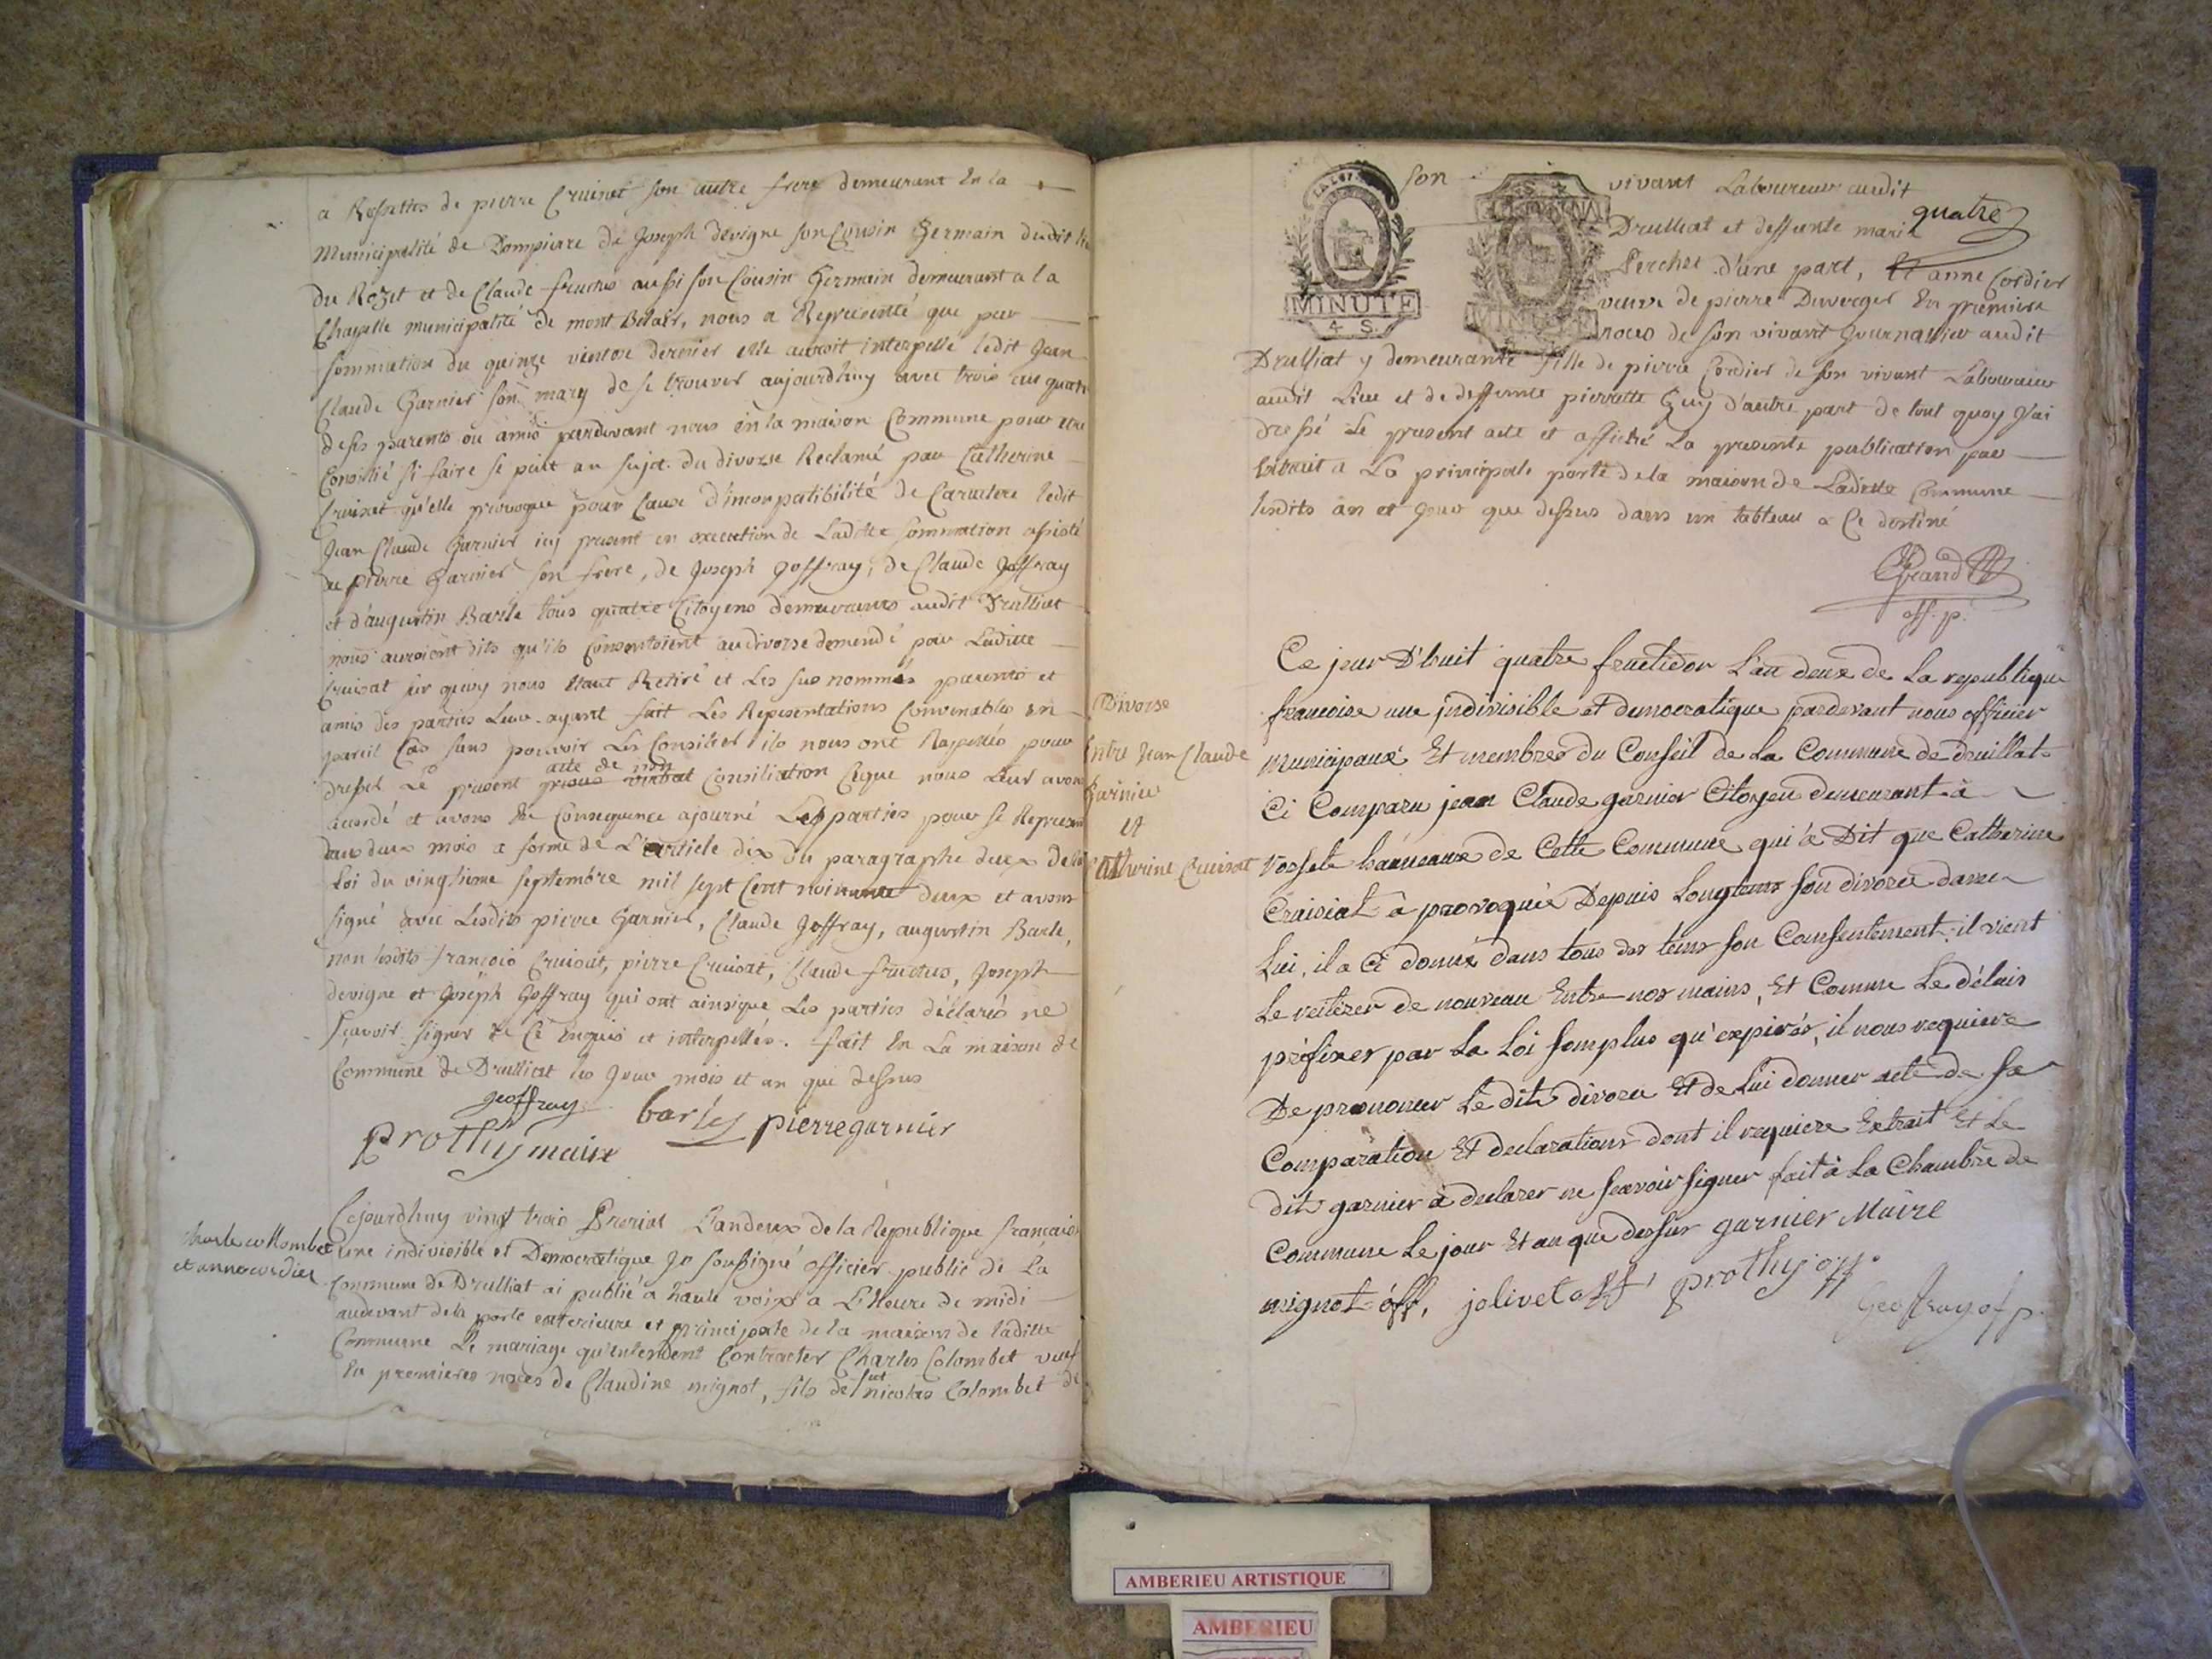 a Rossettes de pierre Cruisat son autre frere demeurant En la
Municipalité de Dompierre de Joseph devigne son Cousin Germain dudit
du Rozet et de Claude fructus aussi son Cousin Germain demeurant a la
Chapelle municipalité de mont Belair, nous a Representé que par
sommation du quinze ventose dernier elle auroit interpellé ledit Jean
Claude Garnier son mary de se trouver aujourdhuy avec trois ou quatre
de ses parents ou amis pardevant nous en la maison Commune pour etre
Consillié si faire se peut au sujet du divorse Reclamé par Catherine
Cruisat qu'elle provoque pour Cause d'incompatibilité de Caractere ledit
Jean Claude Garnier icy present en execution de Laditte sommation assisté
de pierre Garnier son frere, de Joseph Joffray, de Claude Joffray
et d'augustin Barle tous quatre Citoyens demeurants audit Drulliat
nous auroient dits qu'ils Consentoient au divorse demendé par Laditte
Cruisat sur quoy nous etant Retiré et Les sus nommés parents et
amis des parties Leur ayant fait Les Representations Convenables en
pareil Cas sans pouvoir Les Consilier ils nous ont Rappellés pour
acte de non
dresser Le present proces verbal Consiliation Ceque nous Leur avons
acordé et avons En Consequence ajourné Les parties pour se Represen
dans deux mois a forme de L'article dix du paragraphe deux de la
Loi du vingtieme septembre mil sept Cent noinante deux et avons
signé avec Lesdits pierre Garnier, Claude Joffray, augustin Barle,
non lesdits françois Cruisat, pierre Cruisat, Claude fructus, Joseph
devigne et Joseph Goffray qui ont ainsique Les parties déclarés ne
sçavoir signer de Ce Enquis et interpellés. fait En La maison de
Commune de Drulliat les Jour mois et an que dessus
geoffray
Prothy maire barley pierre garnier
Charles collombet
et anne cordier
Cejourdhuy vingt trois Prerial L'an deux de la Republique française
une indivisible et Democratique Je soussigné officier public de La
Commune de Drulliat ai publié a haute voix a L'Heure de midi
audevant de la porte exterieure et principale de la maison de laditte
Commune Le mariage qu'entendent Contracter Charles Colombet veuf
En premieres noces de Claudine mignot, fils de fut nicolas Colombet de
LA LOI
MINUTE
4 S.
MINUTE
quatre
son vivant Laboureur audit
Drulliat et deffunte marie
Perchet d'une part, Et anne Cordier
veuve de pierre Duverger En premiere
noces de son vivant Journallier audit
Drulliat y demeurante fille de pierre Cordier de son vivant Laboureur
audit Lieu et de deffunte pierrette Guy d'autre part de tout quoy J'ai
dressé Le present acte et affiché La presente publication par
Extrait a La principale porte de la maison de Laditte Commune
lesdits an et Jour que dessus dans un tableau a Ce destiné
Grand
off. p.
Divorse
Entre Jean Claude
Garnier
et
Catherine Cruisat
Ce jour D'huit quatre fructidor L'an deux de La republique
francoise une jndivisible et democratique pardevant nous officier
municipaux Et membres du Conseil de La Commune de druillat
Ci Comparu jean Claude garnier Citoyen demeurant à
rossete hameaux de Cette Commune qui à Dit que Catherine
Craisiat à provoquié Depuis Longtems son divorce davec
Lui, il a Ci donné dans tous des tems son Consentement, il vient
Le reitérer de nouveau Entre nos mains, Et Comme Le délais
préfixer par La Loi son plus qu'expirés, il nous requiere
De prononcer Le dit divorce Et de Lui donner acte de sa
Comparation Et declarations dont il requiere Extrait Et Le
dit garnier à declarer ne scavoir signer fait à La Chambre de
Commune Le jour Et an que dessur garnier Maire
mignot off, jolivet off prothy off.
Geoffray of p.
AMBERIEU ARTISTIQUE
AMBERIEU